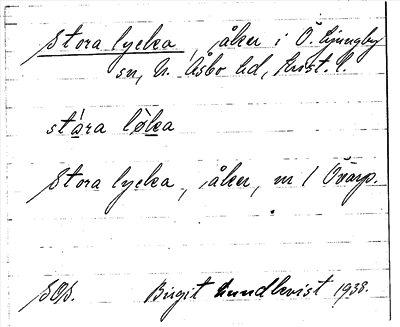 Stora lycka, åker i Ö. Ljungby
sn, N. Åsbo hd, Krist. l.
stára lø̀ka
Stora lycka, åker, nr 1 Övarp.
SOS. Birgit Lundkvist 1938.